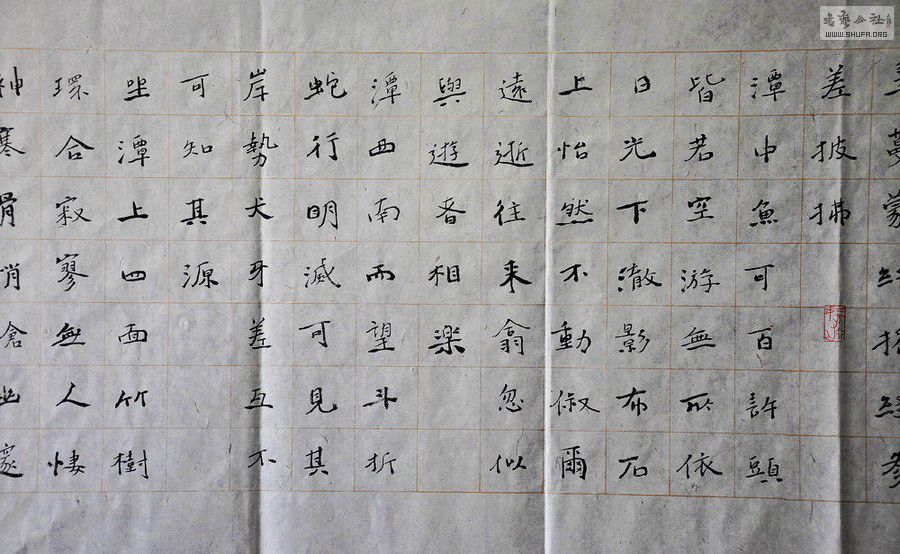 蔓蒙絡搖綴參
差披拂
潭中魚可百許頭
皆若空游無所依
日光下澈影布石
上怡然不動俶爾
遠逝往来翕忽似
與遊者相楽
潭西南而望斗折
蛇行明滅可見其
岸勢犬牙差互不
可知其源
坐潭上四面竹樹
環合寂寥無人悽
神寒骨悄愴幽邃
書藝公社
WWW.SHUFA.ORG